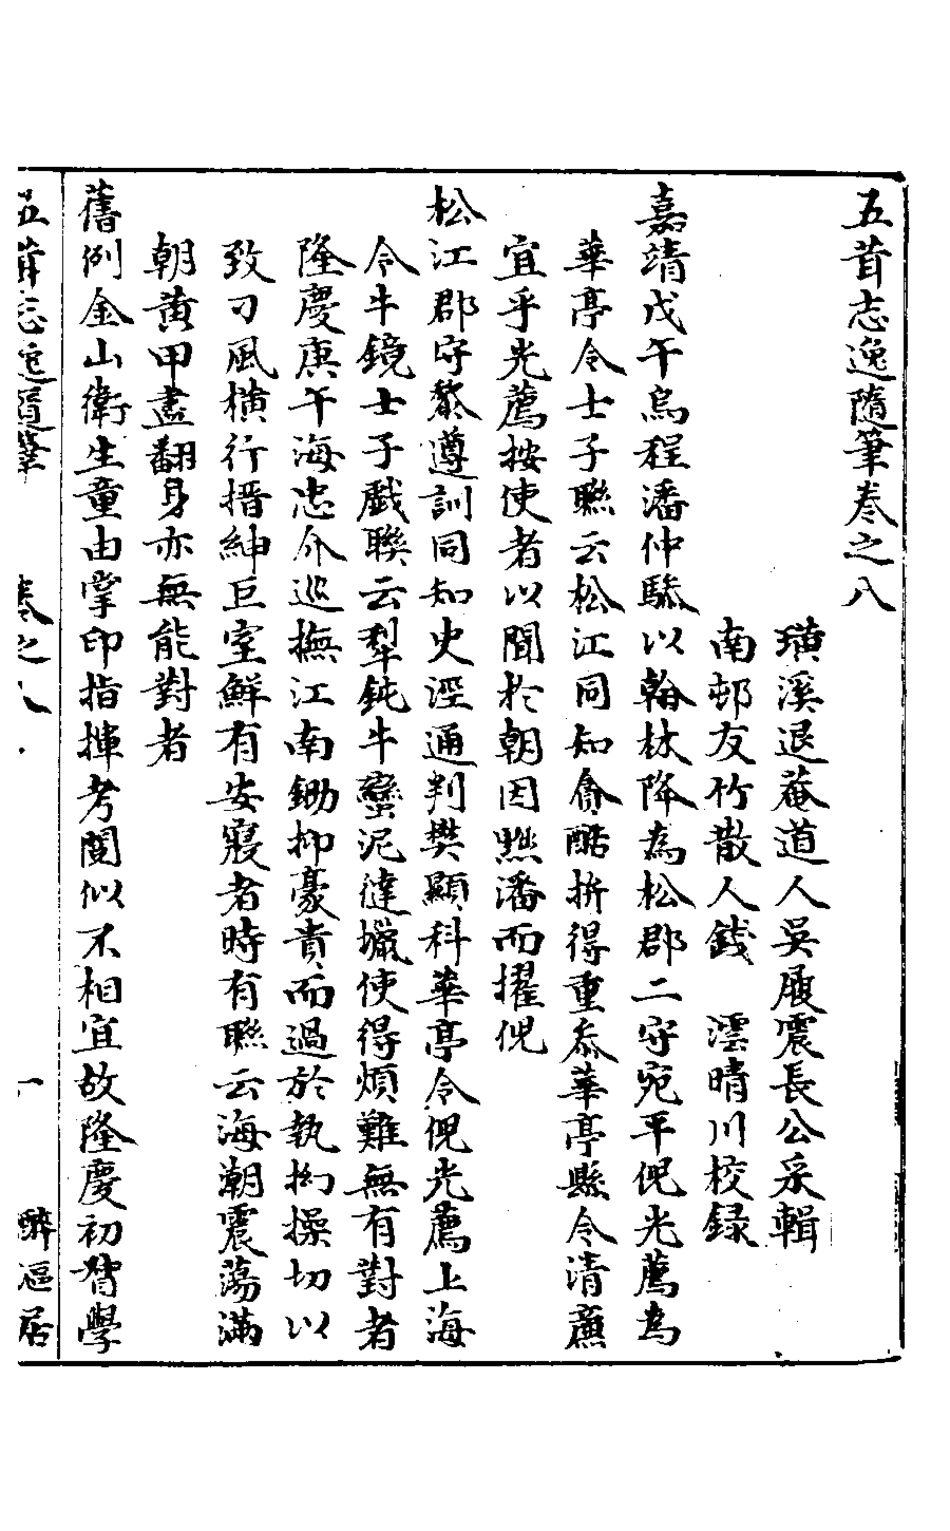 五茸志逸隨筆卷之八
璜溪退菴道人吳履震長公采輯
南邨友竹散人錢　澐晴川校録
嘉靖戊午烏程潘仲驂以翰林降為松郡二守宛平倪光薦為
華亭令士子聯云松江同知貪酷拚得重叅華亭縣令清廉
宜乎光薦按使者以聞於朝因黜潘而擢倪
松江郡守蔡遵訓同知史涇通判樊顯科華亭令倪光薦上海
令牛鏡士子戲聯云犁鈍牛蠻泥健㹴使得煩難無有對者
隆慶庚午海忠介巡撫江南鋤抑豪貴而過於執拘操切以
致刁風橫行搢紳巨室鮮有安寢者時有聯云海潮震蕩滿
朝黃甲盡翻身亦無能對者
舊例金山衛生童由掌印指揮考閱似不相宜故隆慶初督學
五茸志逸隨筆　卷之八　一　醉漚居